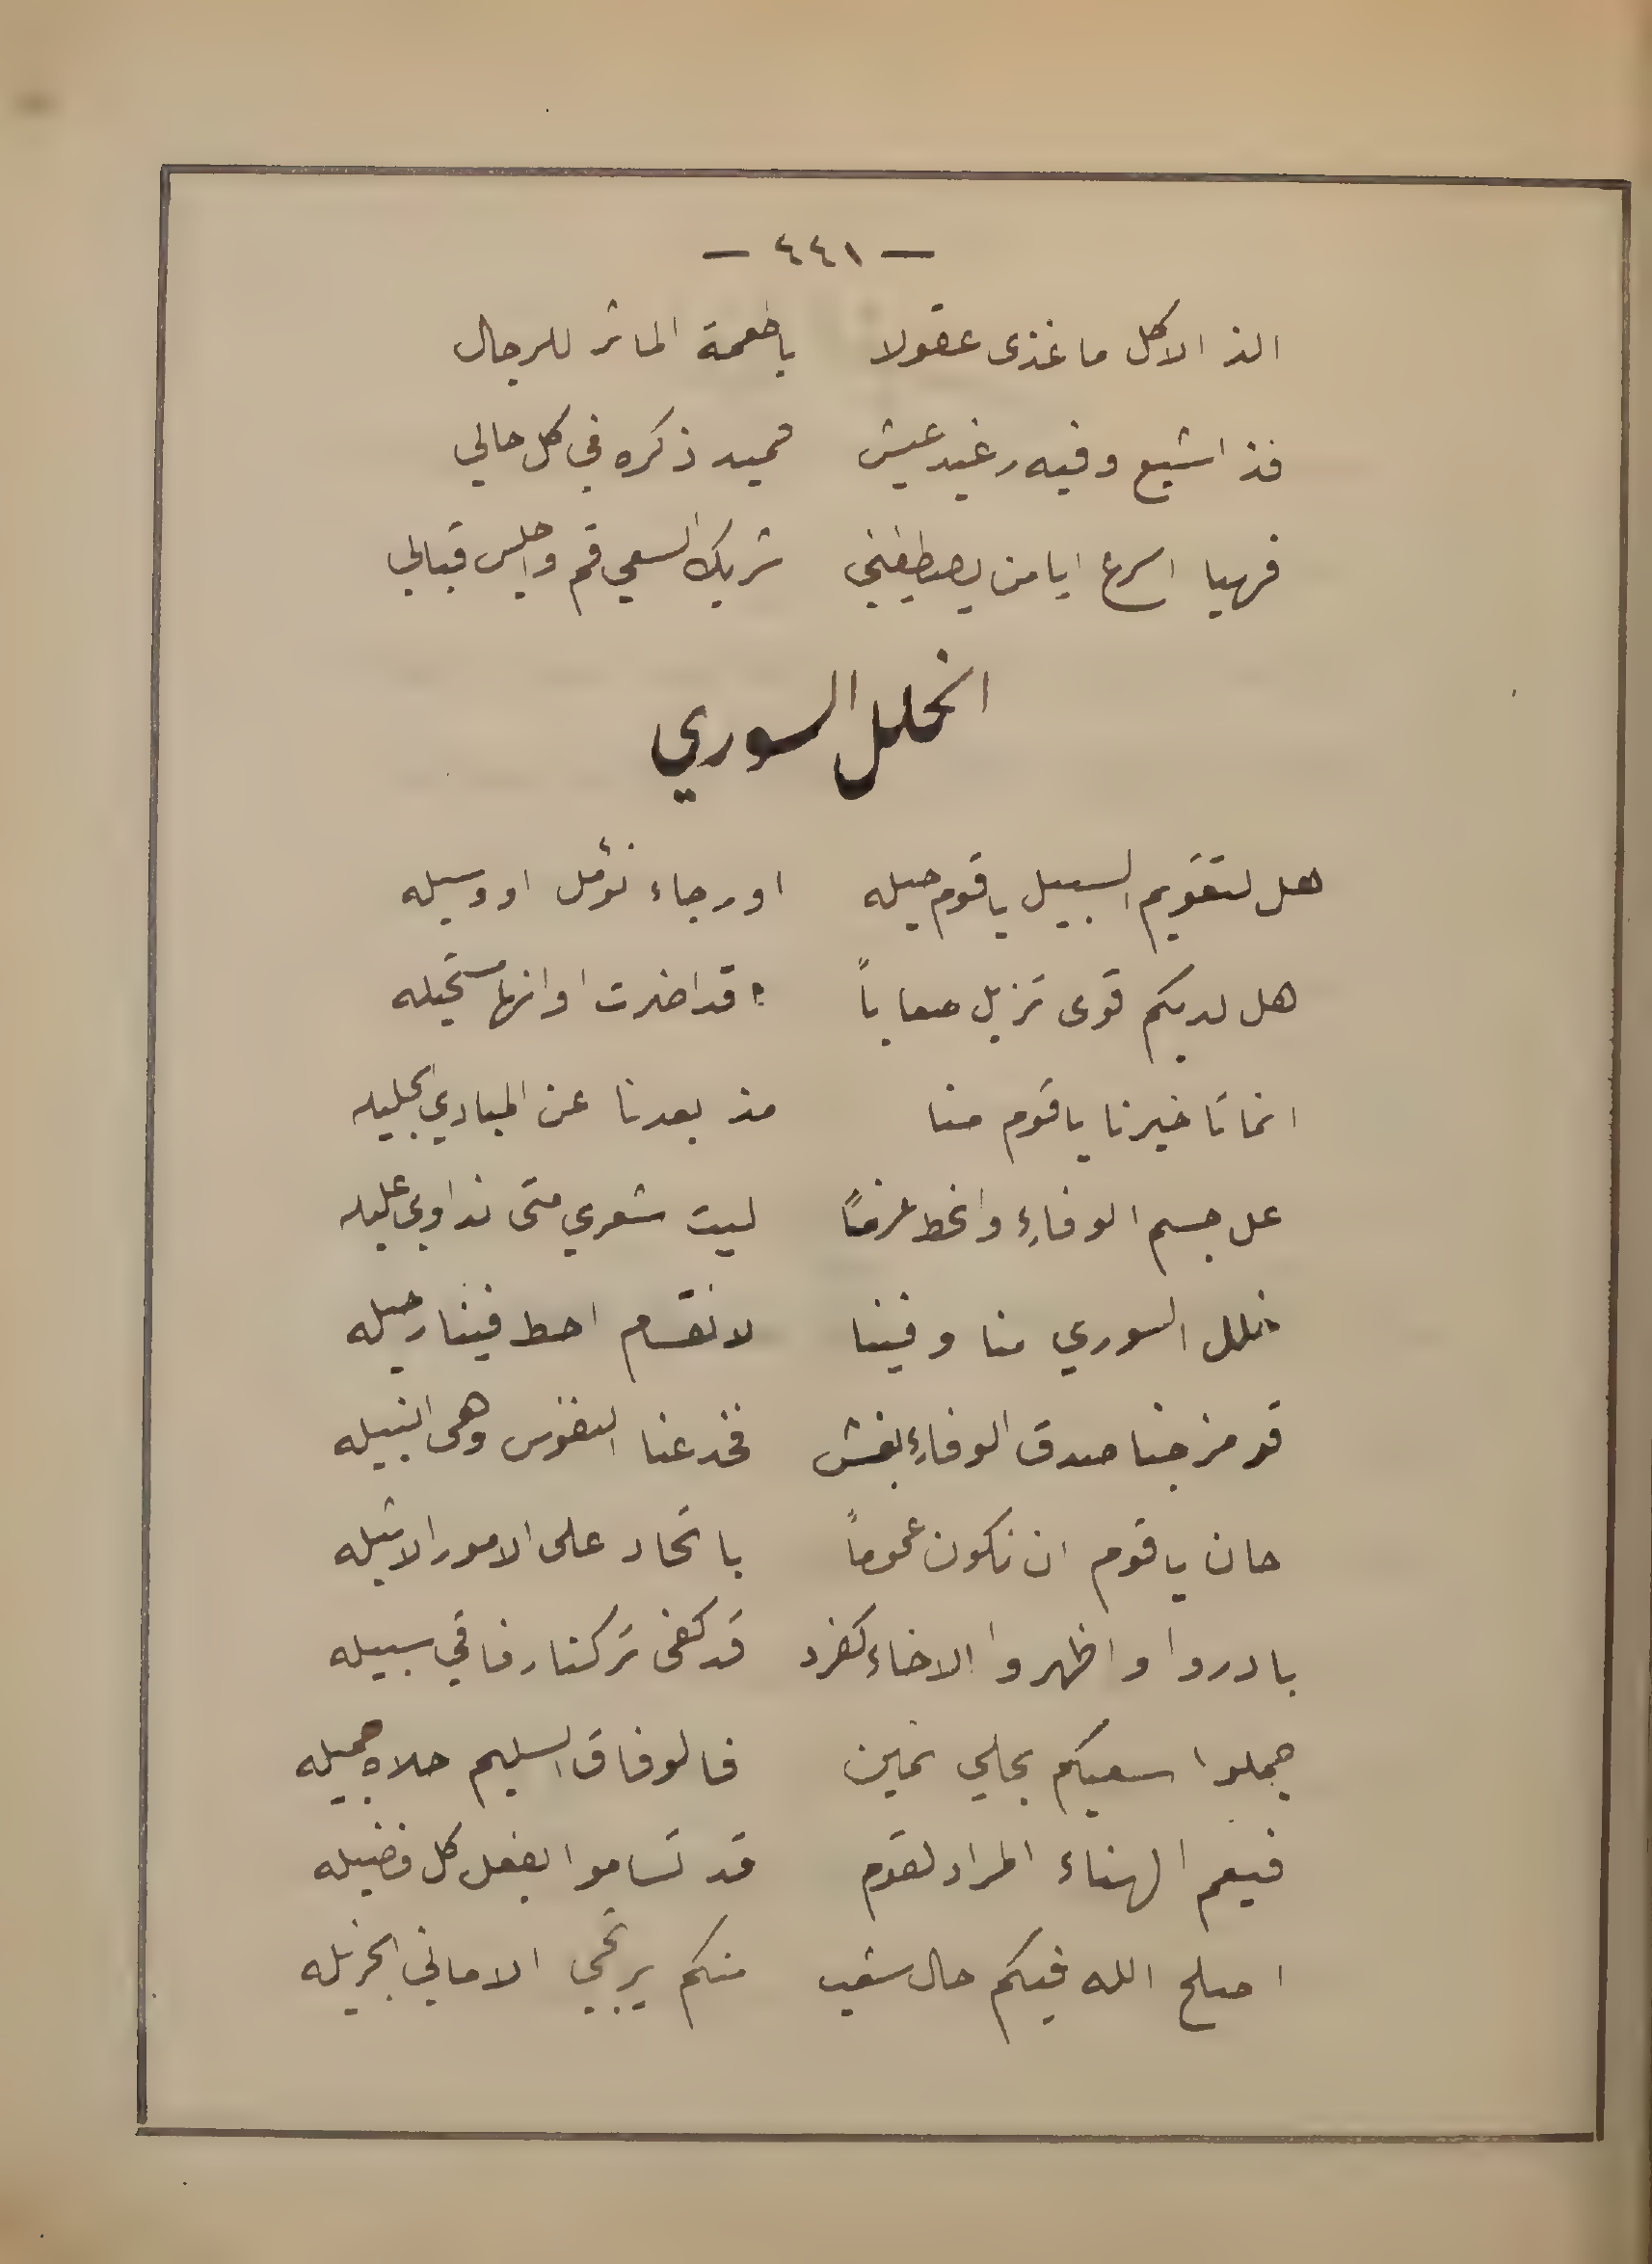 — ٤٤١ —
الذ الاكل ما غذى عقولا باطعمة الماثر للرجال
فذا شيع وفيه رغيد عيش حميد ذكره في كل حالي
فهيا اسرع ايا من يصطفيني شريك السعي قم واجلس قبالي
الخلل السوري
هل لتقويم السبيل يا قوم حيله او رجاء نؤمل او وسيله
هل لديكم قوى تزيل صعاباً قد اضرت او انها مستحيله
انما تاخيرنا يا قوم منا مذ بعدنا عن المبادي الجليله
عل جسم الوفاءِ وانحط عزماً ليت شعري متى نداوي عليله
خلل السوري منا وفينا لانقسام احط فينا رحيله
قد مزجنا صدق الوفاءِ بغش فخدعنا النفوس وهى النبيله
حان يا قوم ان نكون عموماً باتحاد على الامور الاثيله
بادروا واظهروا الاخاء كفرد قد كفى تركنا رفاقي سبيله
جملوا سعيكم بحلي ثمين فالوفاق السليم حلاه جميله
فيعم الهناء المراد لقوم قد تساموا بفعل كل فضيله
اصلح الله فيكم حال شعب منكم يرتجي الاماني الجزيله